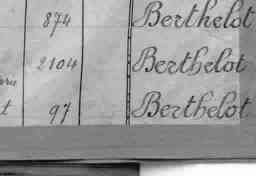 874 Berthelot
2104 Berthelot
t 97 Berthelot